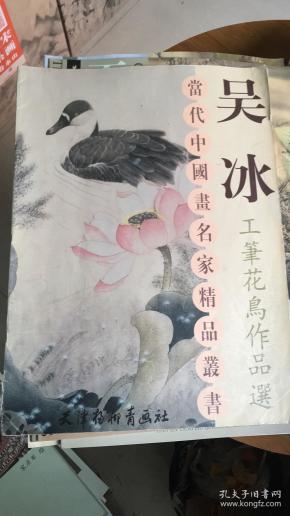 吴冰
工筆花鳥作品選
當代中國畫名家精品叢書
天津楊柳青画社
孔夫子旧书网